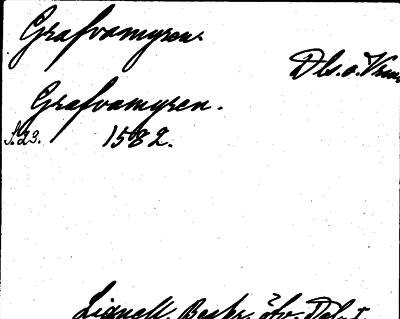 Grafvamyren.
Dls. o. Vrm.
Grafvamyren.
s. 23. 1582.
Lignell, Beskr. öfv. Dal. I.